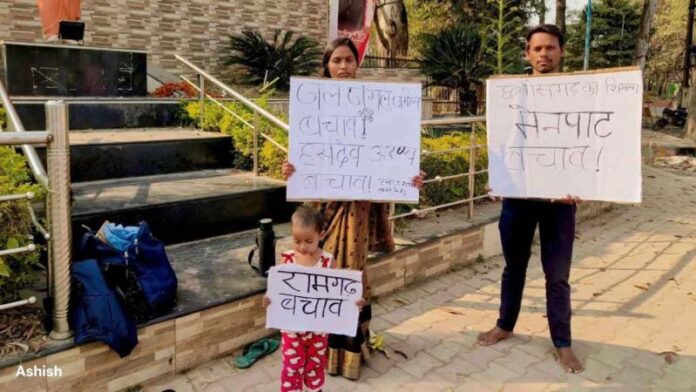 जल जंगल जमीन
बचाव!
हसदेव अरण्य
बचाव।
छत्तीसगढ़ का शिमला
मैनपाट
बचाव!
रामगढ़
बचाव
Ashish